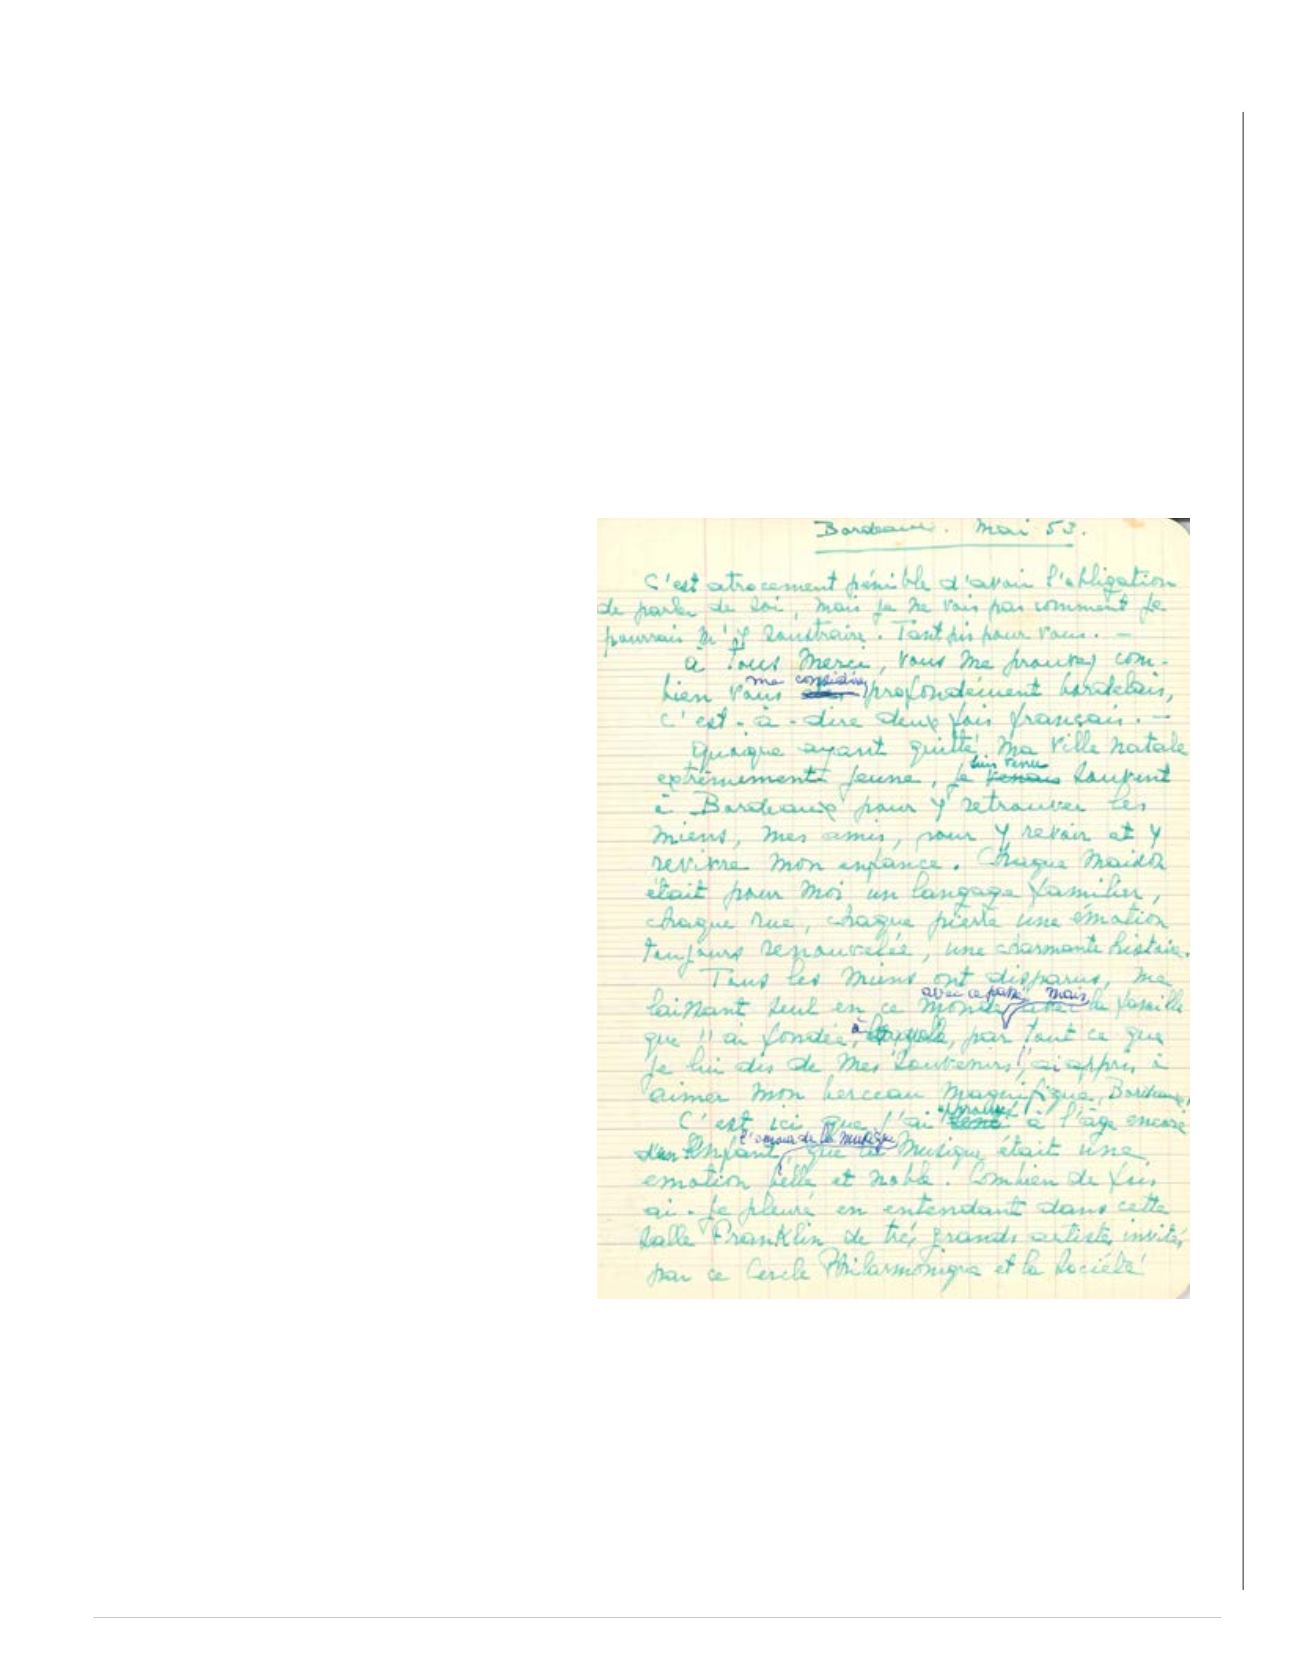 Bordeaux. Mai 53.
C'est atrocement pénible d'avoir l'obligation
de parler de soi, mais je ne vois pas comment je
pourrais m'y soustraire. Tant pis pour vous. —
à Tous Merci, vous me prouvez com-
me considérez
bien vous profondément bordelais,
c'est-à-dire deux fois français. —
Quoique ayant quitté ma ville natale
suis venu
extrêmement jeune, je venais souvent
à Bordeaux pour y retrouver les
miens, mes amis, pour y revoir et y
revivre mon enfance. Chaque maison
était pour moi un langage familier,
chaque rue, chaque pierre une émotion
toujours renouvelée, une charmante histoire.
Tous les miens ont disparus, me
avec ce passé mais
laissant seul en ce monde avec la famille
que j'ai fondée, à laquelle, par tout ce que
je lui dis de mes souvenirs, j'ai appris à
aimer mon berceau magnifique, Bordeaux,
éprouvé
C'est ici que j'ai senti à l'âge encore
l'amour de la musique
d'un Enfant, que la Musique était une
emotion belle et noble. Combien de fois
ai-je pleuré en entendant dans cette
salle Franklin de très grands artistes invités
par ce Cercle Philarmonique et la Société